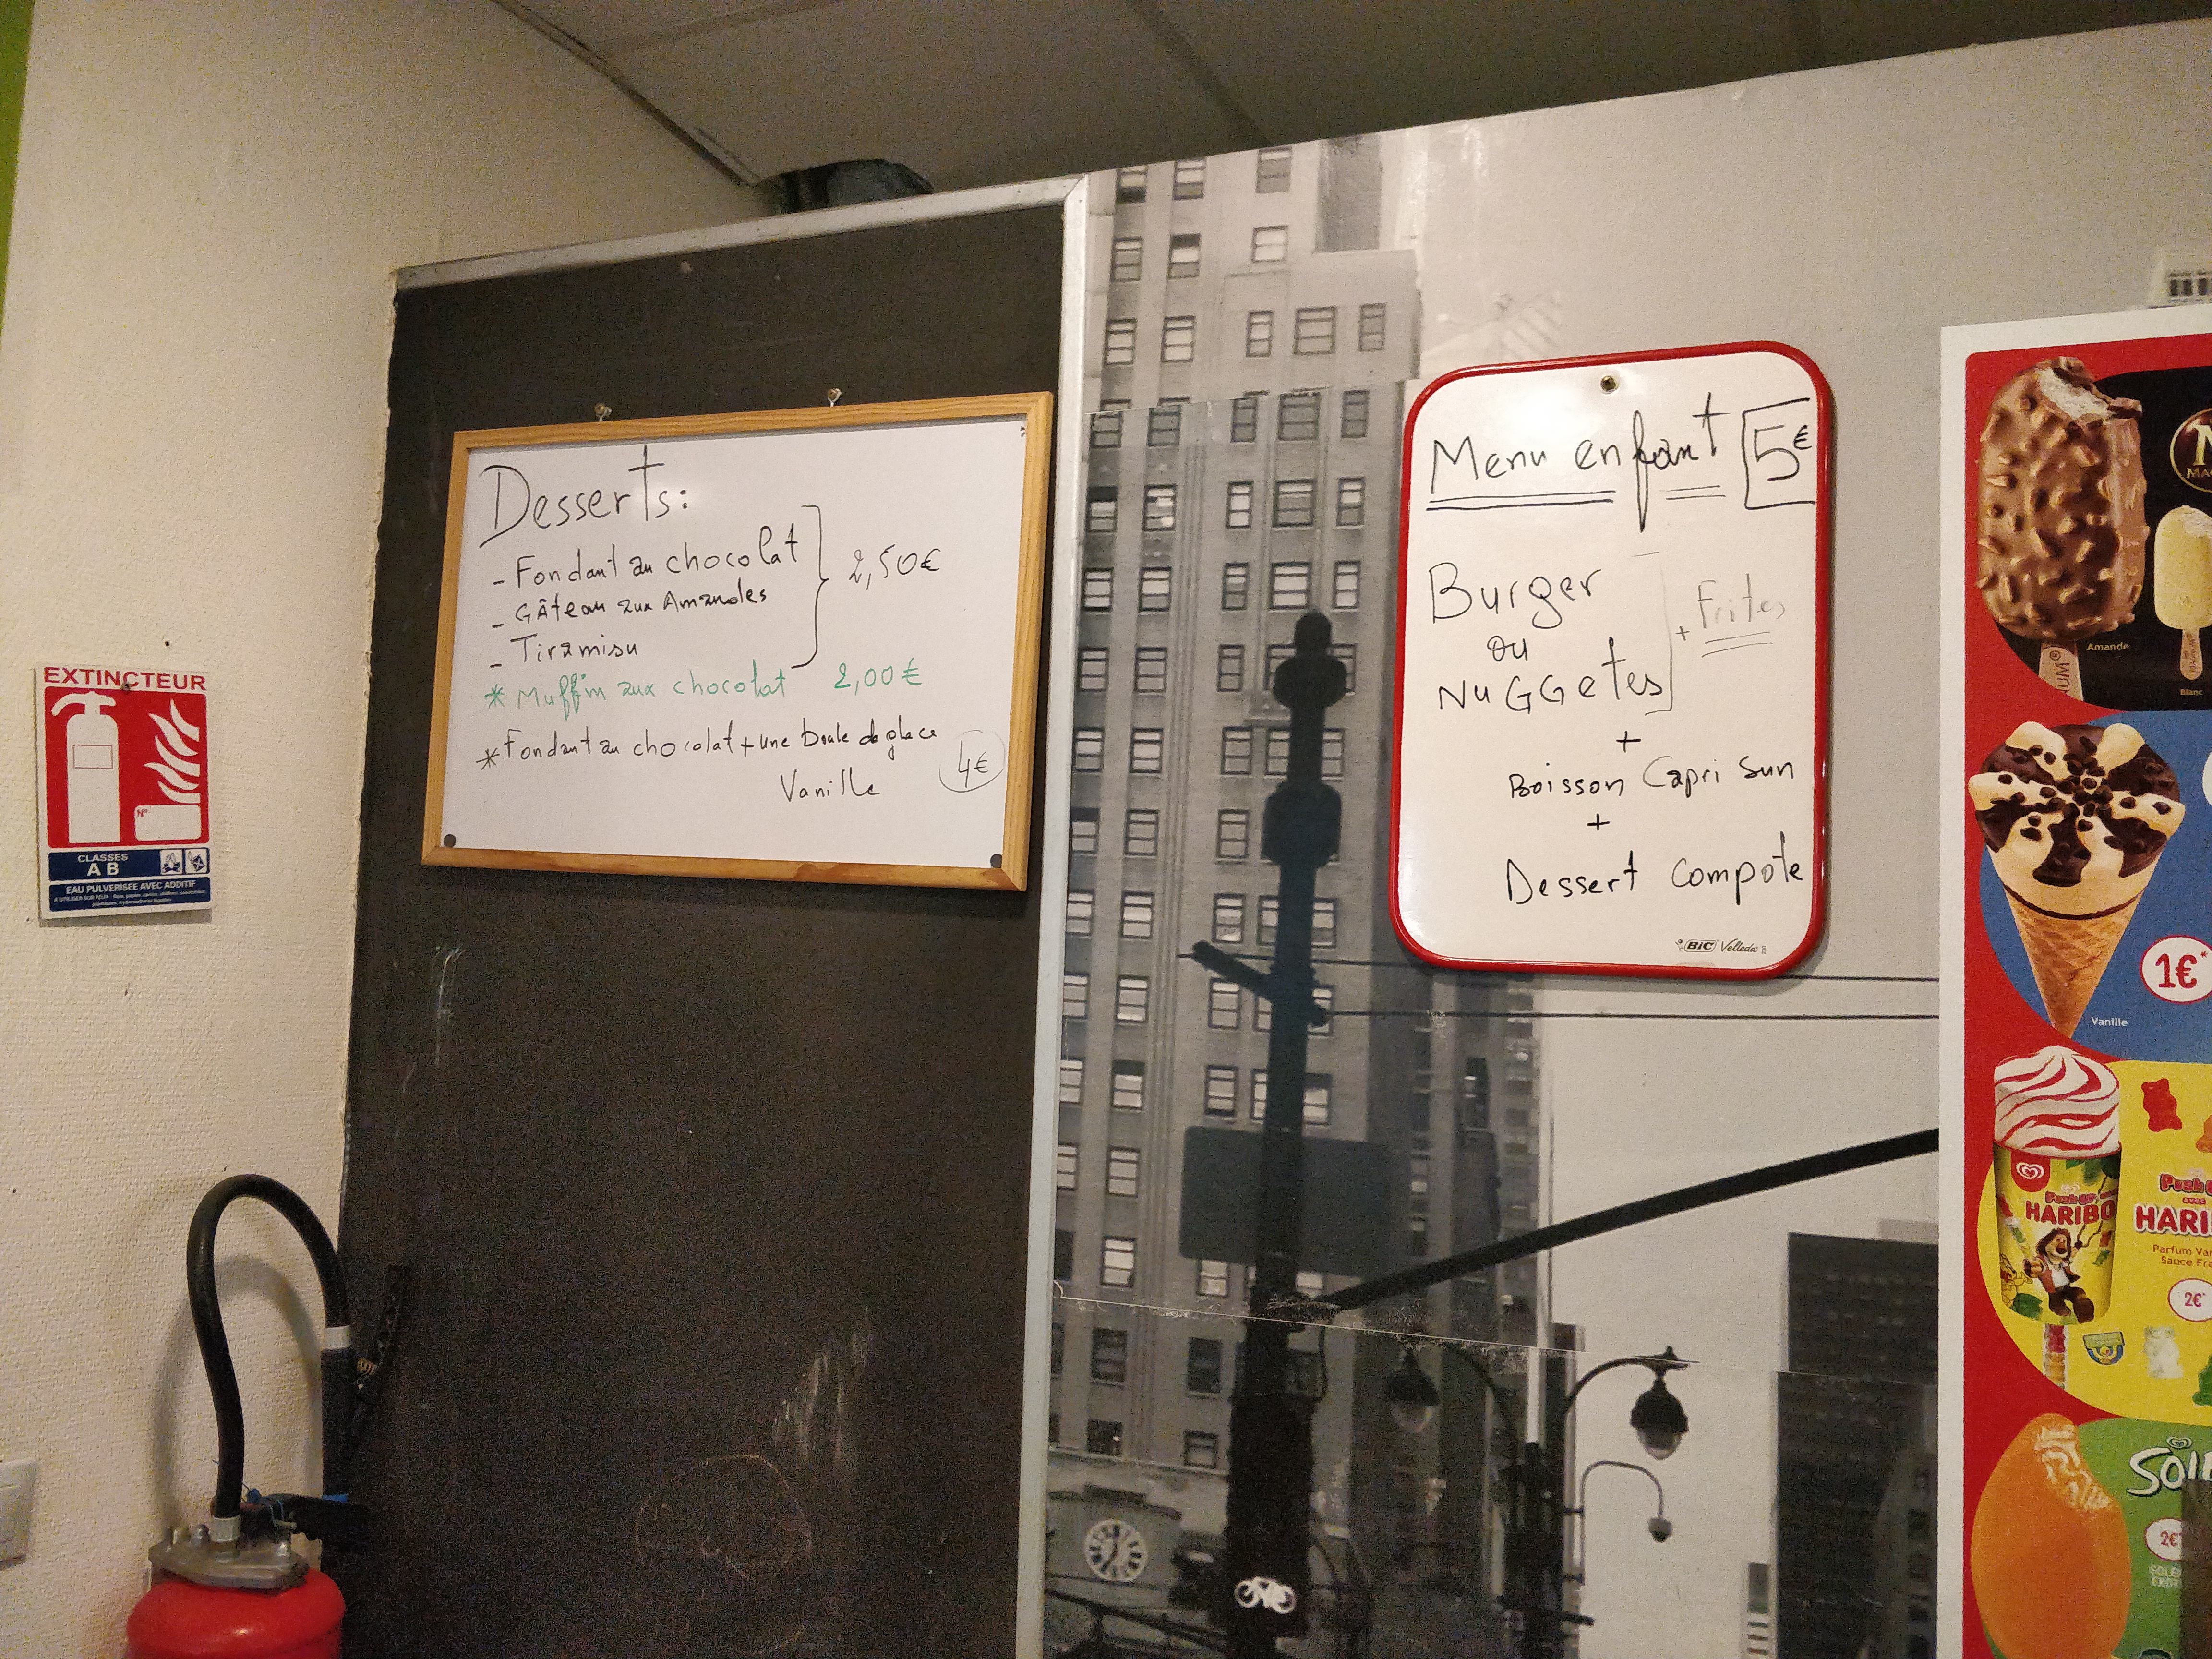 EXTINCTEUR
N°
CLASSES
A B
EAU PULVERISEE AVEC ADDITIF
Desserts:
- Fondant au chocolat
- Gâteau aux Amandes
- Tiramisu
2,50€
* Muffin aux chocolat 2,00€
* Fondant au chocolat + une boule de glace
Vanille
4€
Menu enfant 5€
Burger
ou
NuGGetes
+ Frites
+
Boisson Capri Sun
+
Dessert Compote
BIC Velleda
Amande
Blanc
1€*
Vanille
Push up
HARIBO
2€*
2€*